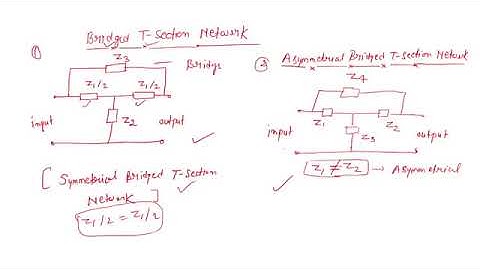 Bridged T-Section Network
①
Z3
Bridge
Z1/2
Z1/2
Z2
input
output
[ Symmetrical Bridged T-Section
Network ]
Z1/2 = Z1/2
② Asymmetrical Bridged T-Section Network
Z4
Z1
Z2
Z3
input
output
Z1 ≠ Z2 → Asymmetrical